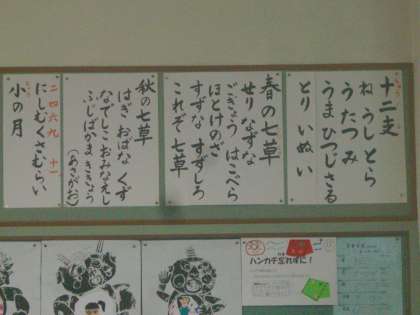 十二支
ね うし とら
う たつ み
うま ひつじ さる
とり いぬ い
春の七草
せり なずな
ごぎょう はこべら
ほとけのざ
すずな すずしろ
これぞ 七草
秋の七草
はぎ おばな くず
なでしこ おみなえし
ふじばかま ききょう
(あさがお)
二四六九 十一
にしむくさむらい
小の月
ハンカチ忘れずに!